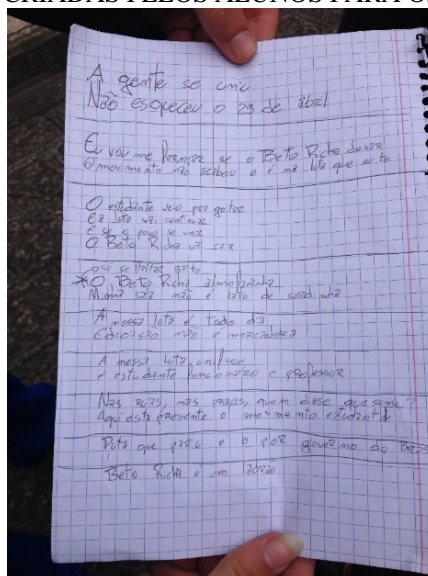 CRIADAS PELOS ALUNOS PARA OS
A gente se uniu
Não esqueceu o 29 de abril
Eu vou me formar se o Beto Richa deixar
O movimento não acabou e é na luta que se
O estudante veio pra gritar
E a luta vai continuar
E se o povo se
O Beto Richa vai cair
O Beto Richa almofadinha
Minha sala não é lata de sardinha
A nossa luta é todo dia
Educação não é mercadoria
A nossa luta unificou
é estudante funcionário e professor
Nas ruas, nas praças, quem disse que sumiu?
Aqui está presente o movimento estudantil
Puta que pariu é o pior governo do Brasil
Beto Richa é um ladrão